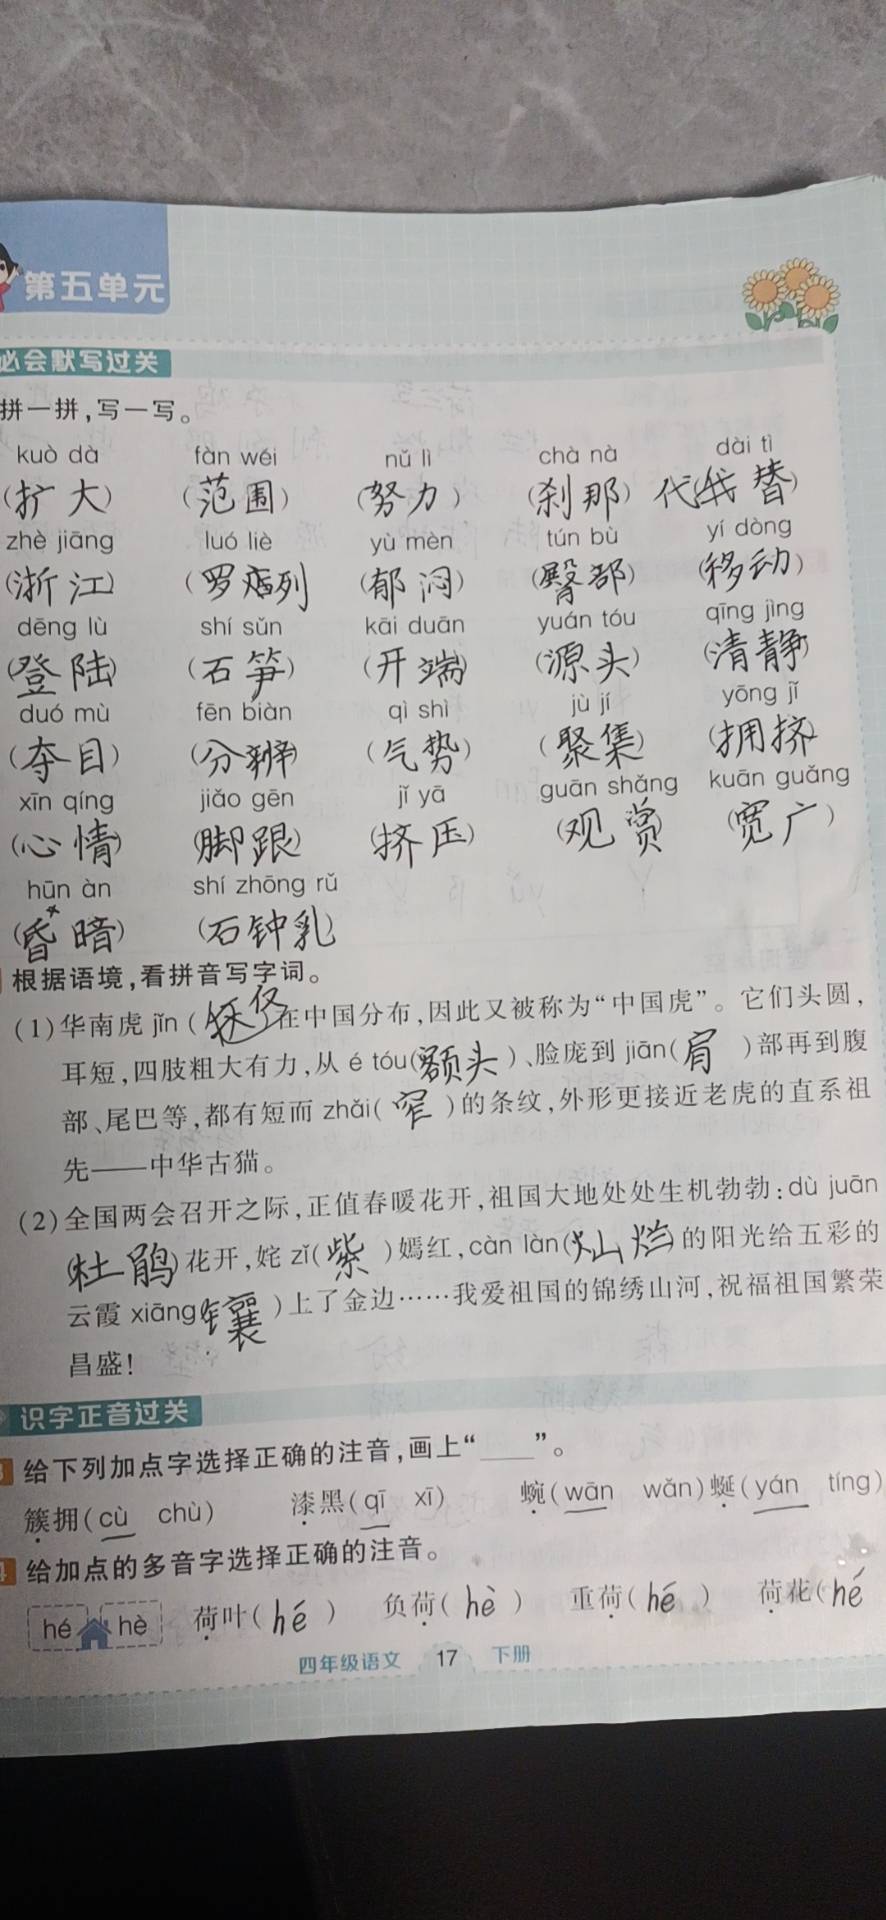 第五单元
必会默写过关
拼一拼,写一写。
kuò dà fàn wéi nǔ lì chà nà dài tì
(扩大) (范围) (努力) (刹那) 代(替)
zhè jiāng luó liè yù mèn tún bù yí dòng
(浙江) (罗列) (郁闷) (臀部) (移动)
dēng lù shí sǔn kāi duān yuán tóu qīng jìng
(登陆) (石笋) (开端) (源头) (清静)
duó mù fēn biàn qì shì jù jí yōng jǐ
(夺目) (分辨) (气势) (聚集) (拥挤)
xīn qíng jiǎo gēn jǐ yā guān shǎng kuān guǎng
(心情) (脚跟) (挤压) (观赏) (宽广)
hūn àn shí zhōng rǔ
(昏暗) (石钟乳)
根据语境,看拼音写字词。
(1)华南虎 jǐn (仅)在中国分布,因此又被称为“中国虎”。它们头圆,
耳短,四肢粗大有力,从 é tóu(额头)、脸庞到 jiān(肩)部再到腹
部、尾巴等,都有短而 zhǎi(窄)的条纹,外形更接近老虎的直系祖
先——中华古猫。
(2)全国两会召开之际,正值春暖花开,祖国大地处处生机勃勃:dù juān
(杜鹃)花开,姹 zǐ(紫)嫣红,càn làn(灿烂)的阳光给五彩的
云霞 xiāng(镶)上了金边……我爱祖国的锦绣山河,祝福祖国繁荣
昌盛!
识字正音过关
给下列加点字选择正确的注音,画上“____”。
簇拥(cù chù) 漆黑(qī xī) 蜿(wān wǎn)蜒(yán tíng)
4 给加点的多音字选择正确的注音。
hé hè 荷叶(hé) 负荷(hè) 重荷(hé) 荷花(hé
四年级语文 17 下册